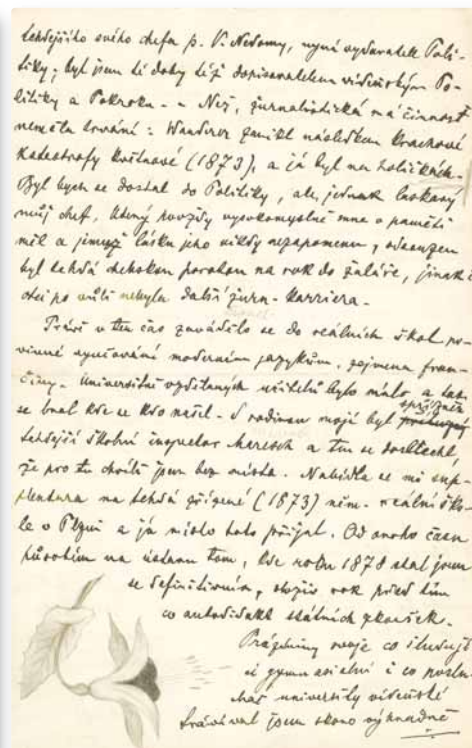 tehdejšího svého chefa p. V. Nedomy, nyní vydavatele Poli-
tiky; byl jsem té doby též dopisovatelem vídeňským Po-
litiky a Pokroku. - Než, žurnalistická má činnost
neměla trvání: Wanderer zanikl následkem krachové
katastrofy květnové (1873), a já byl na holičkách.
Byl bych se dostal do Politiky, ale jednak laskavý
můj chef, který povždy vysokomyslně mne v paměti
měl a jemuž lásku jeho nikdy nezapomenu, odsouzen
byl tehdá chebskou porotou na rok do žaláře, jinak i
otci po vůli nebyla další žurn. karriera.
Právě v ten čas zavádělo se do reálních škol po-
vinné vyučování moderním jazykům, zejmena fran-
činy. Universitně vzdělaných učitelů bylo málo, a tak
se bral kde se kdo našel. S rodinou mojí byl spřízněn
tehdejší školní inspector Maresch a ten se dochtěl,
že pro tu chvíli jsem bez místa. Nabídla se mi sup-
plentura na tehdá zřízené (1873) něm. reální ško-
le v Plzni a já místo toto přijal. Od onoho času
působím na ústavu tom, kde roku 1878 stal jsem
se definitivním, složiv rok před tím
co autodidakt státních zkoušek.
Prázdniny svoje co studující
gymnasielní i co poslu-
chač university vídeňské
trávíval jsem skoro výhradně